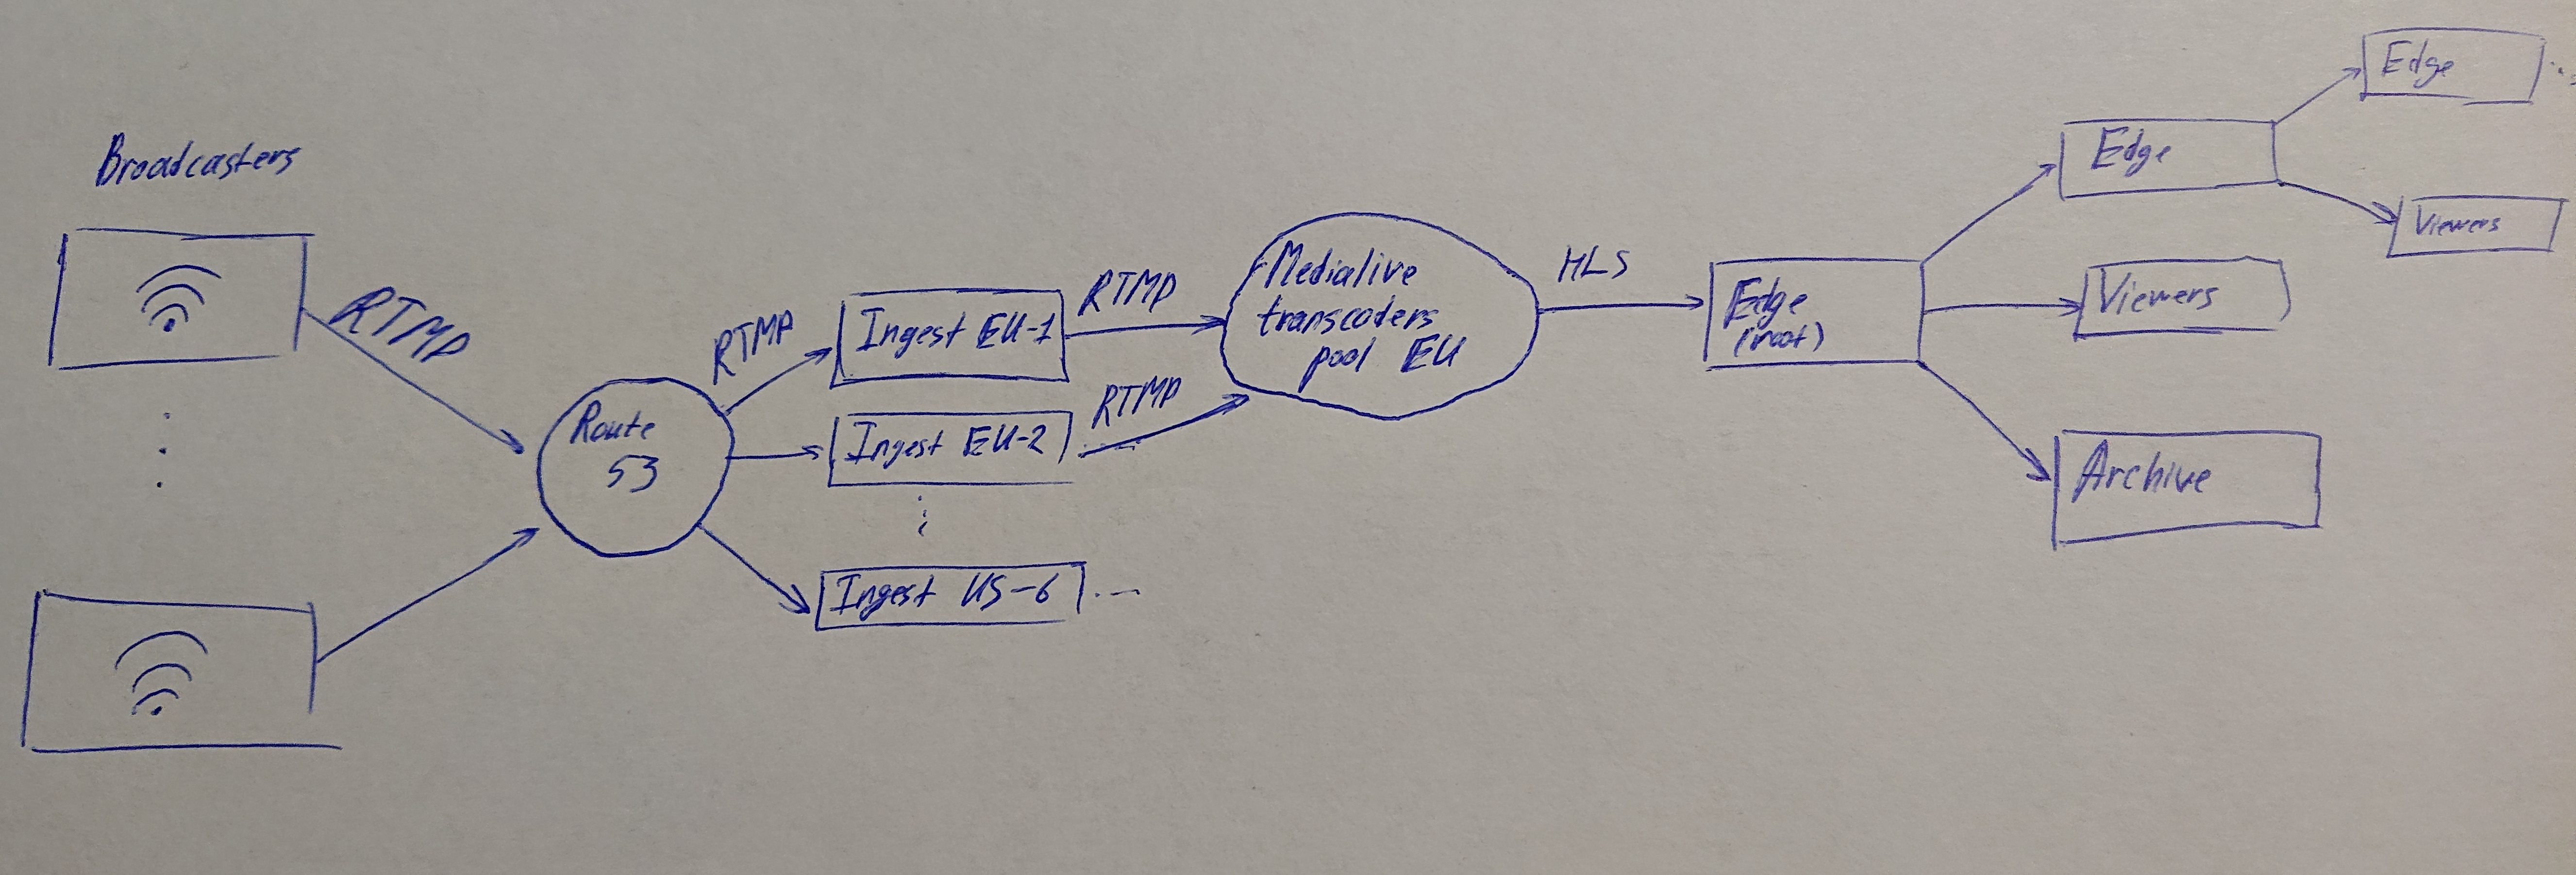 Broadcasters
RTMP
Route
53
RTMP
Ingest EU-1
Ingest EU-2
Ingest US-6
RTMP
RTMP
Medialive
transcoders
pool EU
HLS
Edge
(root)
Edge
Edge
Viewers
Viewers
Archive